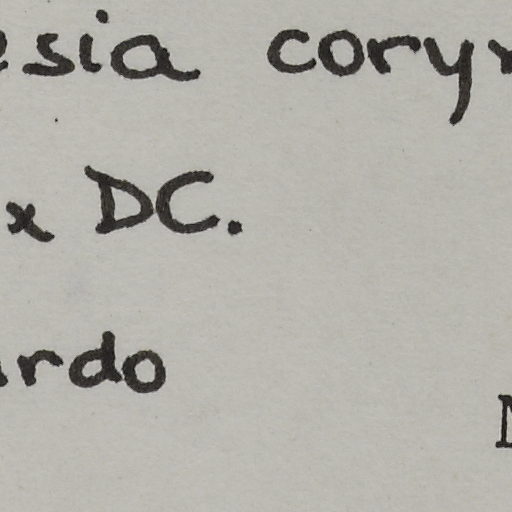 esia cory
x DC.
ardo